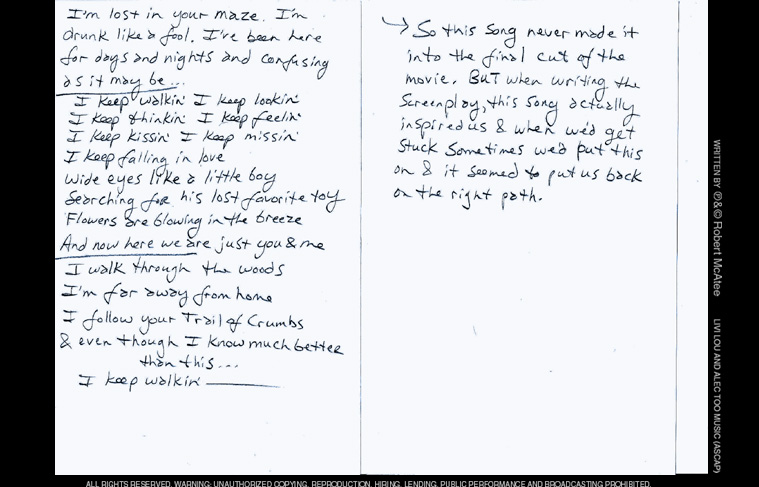 I'm lost in your maze. I'm
drunk like a fool. I've been here
for days and nights and confusing
as it may be...
I keep walkin' I keep lookin'
I keep thinkin' I keep feelin'
I keep kissin' I keep missin'
I keep falling in love
wide eyes like a little boy
searching for his lost favorite toy
Flowers are blowing in the breeze
And now here we are just you & me
I walk through the woods
I'm far away from home
I follow your Trail of Crumbs
& even though I know much better
than this...
I keep walkin'
So this song never made it
into the final cut of the
movie. BUT when writing the
Screenplay, this song actually
inspired us & when we'd get
stuck sometimes we'd put this
on & it seemed to put us back
on the right path.
WRITTEN BY ℗&© Robert McAtee
LIVI LOU AND ALEC TOO MUSIC (ASCAP)
ALL RIGHTS RESERVED. WARNING: UNAUTHORIZED COPYING, REPRODUCTION, HIRING, LENDING, PUBLIC PERFORMANCE AND BROADCASTING PROHIBITED.